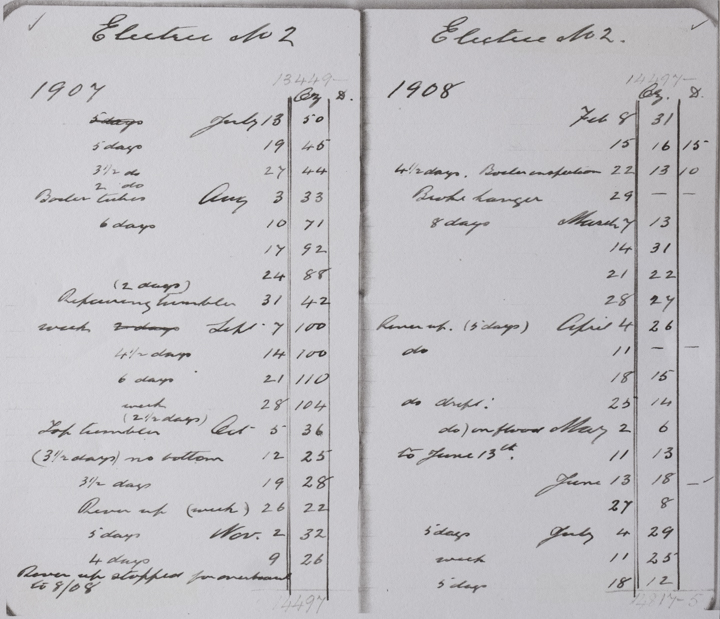 Electric No 2
13449-
1907 Oz D.
5 days July 13 50
5 days 19 45
3½ do 27 44
2 do
Boiler tubes Aug 3 33
6 days 10 71
17 92
24 88
(2 days)
Repairing tumbler 31 42
week 2 days Sept 7 100
4½ days 14 100
6 days 21 110
week 28 104
(2½ days)
Top tumbler Oct 5 36
(3½ days) no bottom 12 25
3½ days 19 28
River up (week) 26 22
5 days Nov. 2 32
4 days 9 26
River up stopped for
to 8/08
14497
Electric No 2.
14497-
1908 Oz. D.
Feb 8 31
15 16 15
4½ days. Boiler inspection 22 13 10
Broke hanger 29 – –
8 days March 7 13
14 31
21 22
28 27
River up. (5 days) April 4 26
do 11 – –
18 15
do 25 14
do) on flood May 2 6
to June 13th. 11 13
June 13 18 –
27 8
5 days July 4 29
week 11 25
5 days 18 12